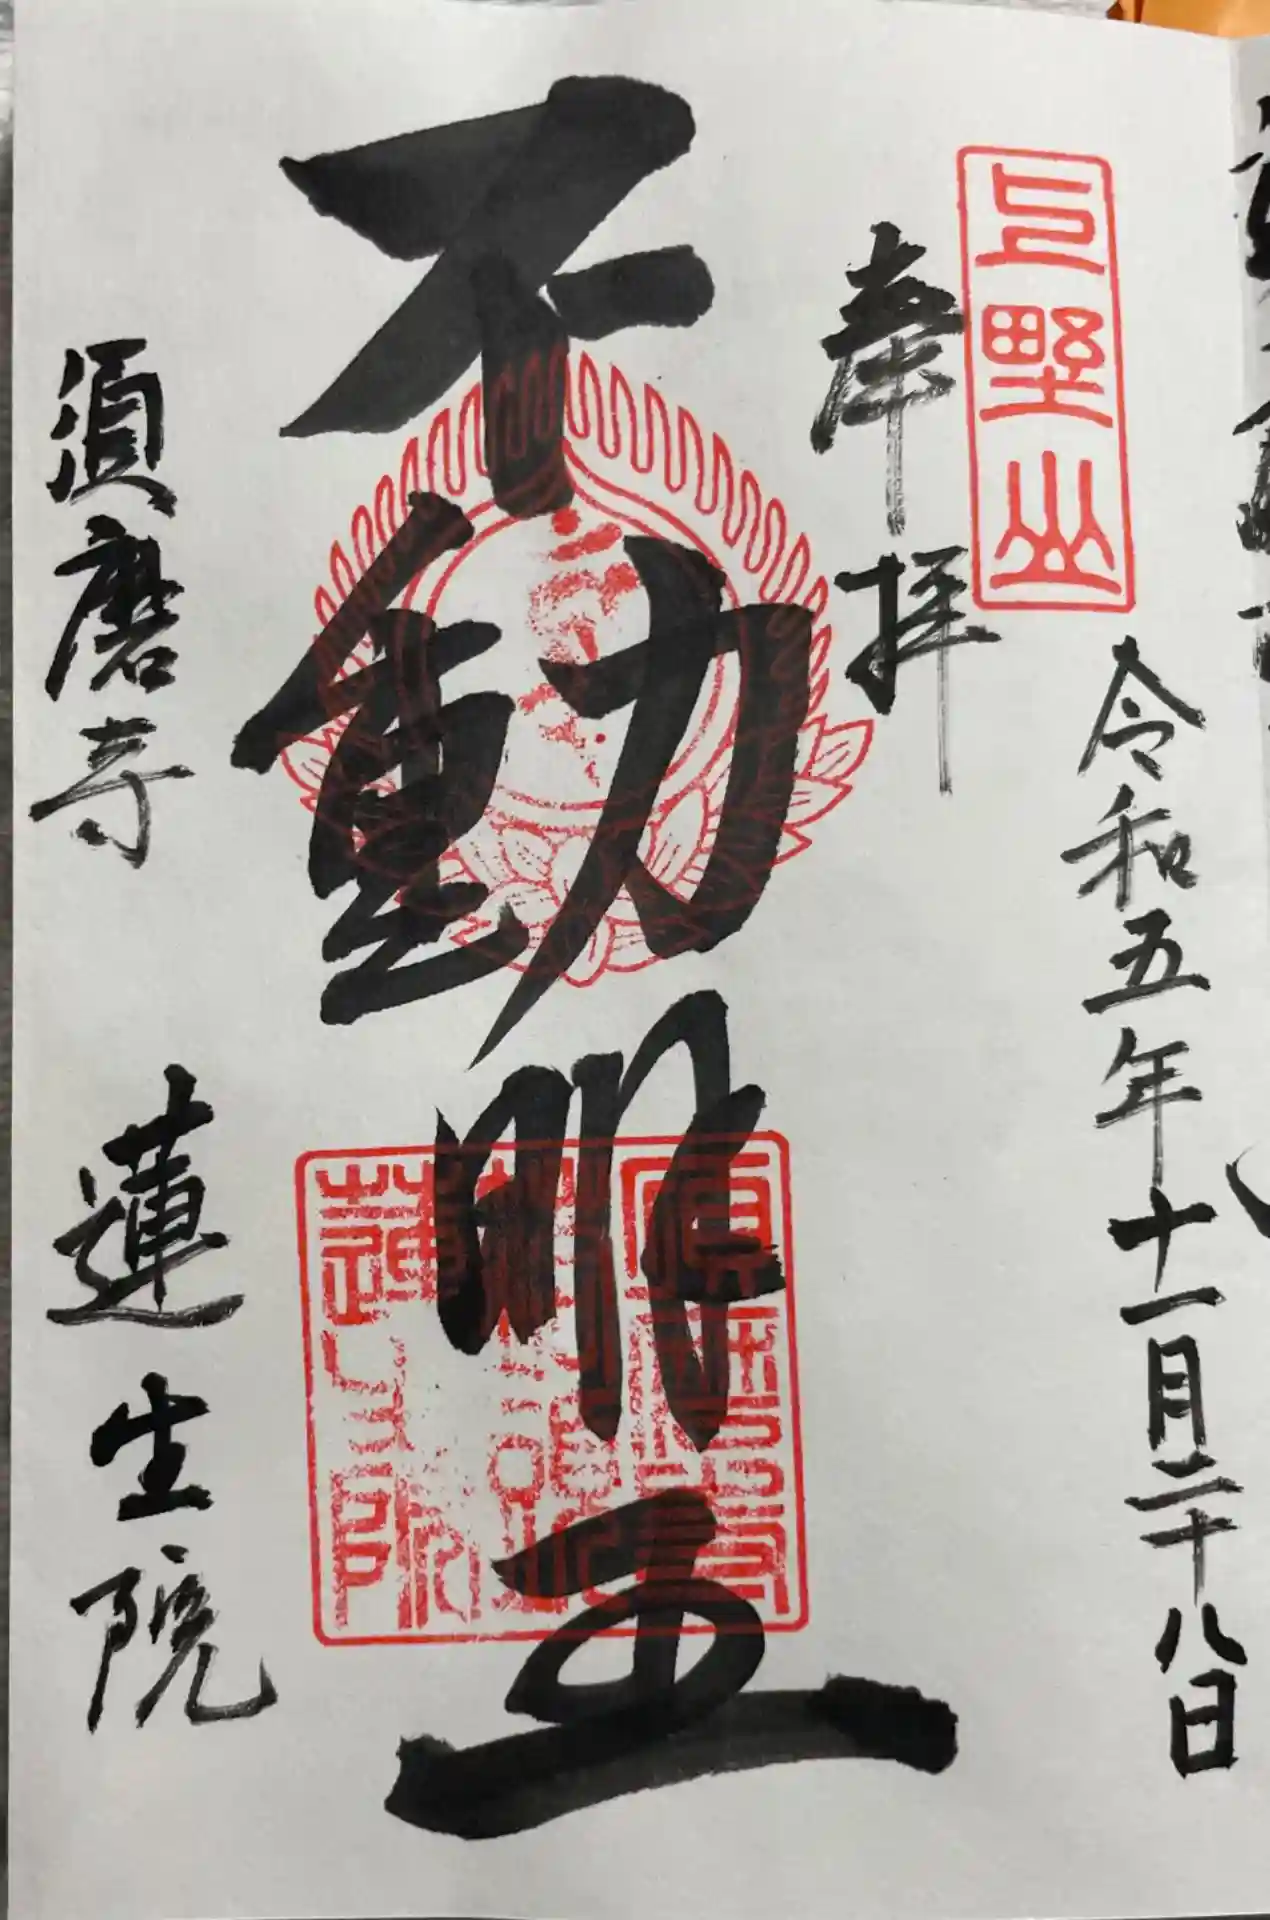 上野山
奉拝
令和五年十一月二十八日
不動明王
須磨寺 蓮生院